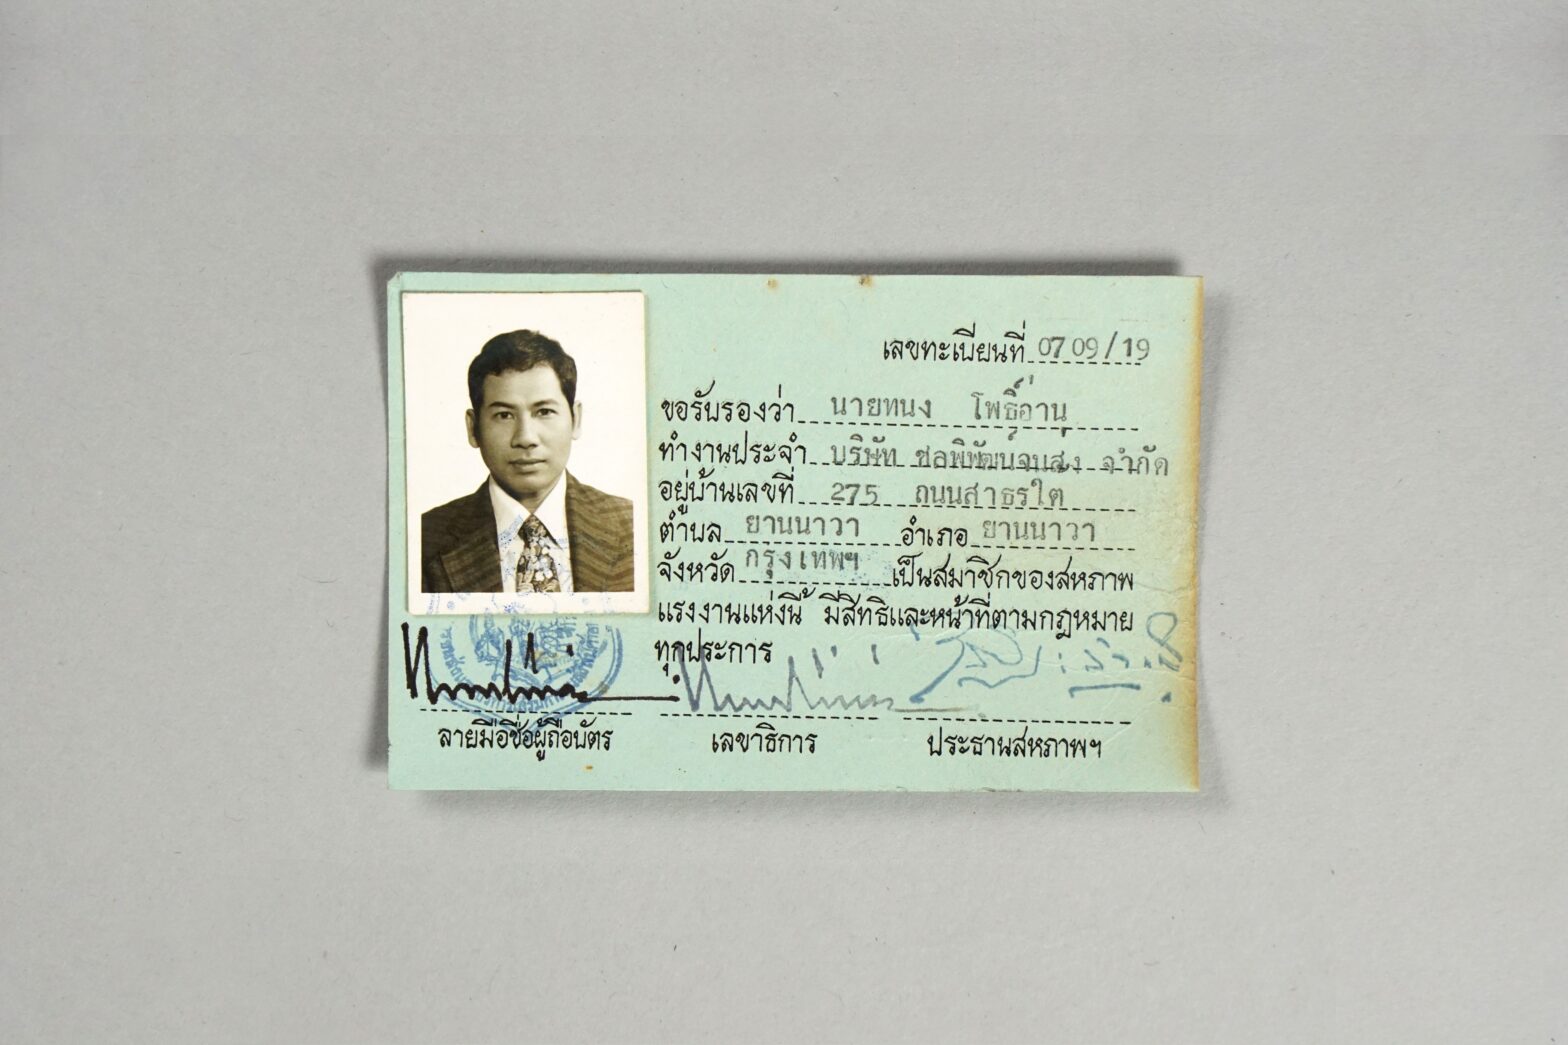 เลขทะเบียนที่ 0709/19
ขอรับรองว่า นายทนง โพธิ์อ่าน
ทำงานประจำ บริษัท ชลพิพัฒน์ขนส่ง จำกัด
อยู่บ้านเลขที่ 275 ถนนสาธรใต้
ตำบล ยานนาวา อำเภอ ยานนาวา
จังหวัด กรุงเทพฯ เป็นสมาชิกของสหภาพ
แรงงานแห่งนี้ มีสิทธิและหน้าที่ตามกฎหมาย
ทุกประการ
ลายมือชื่อผู้ถือบัตร เลขาธิการ ประธานสหภาพฯ